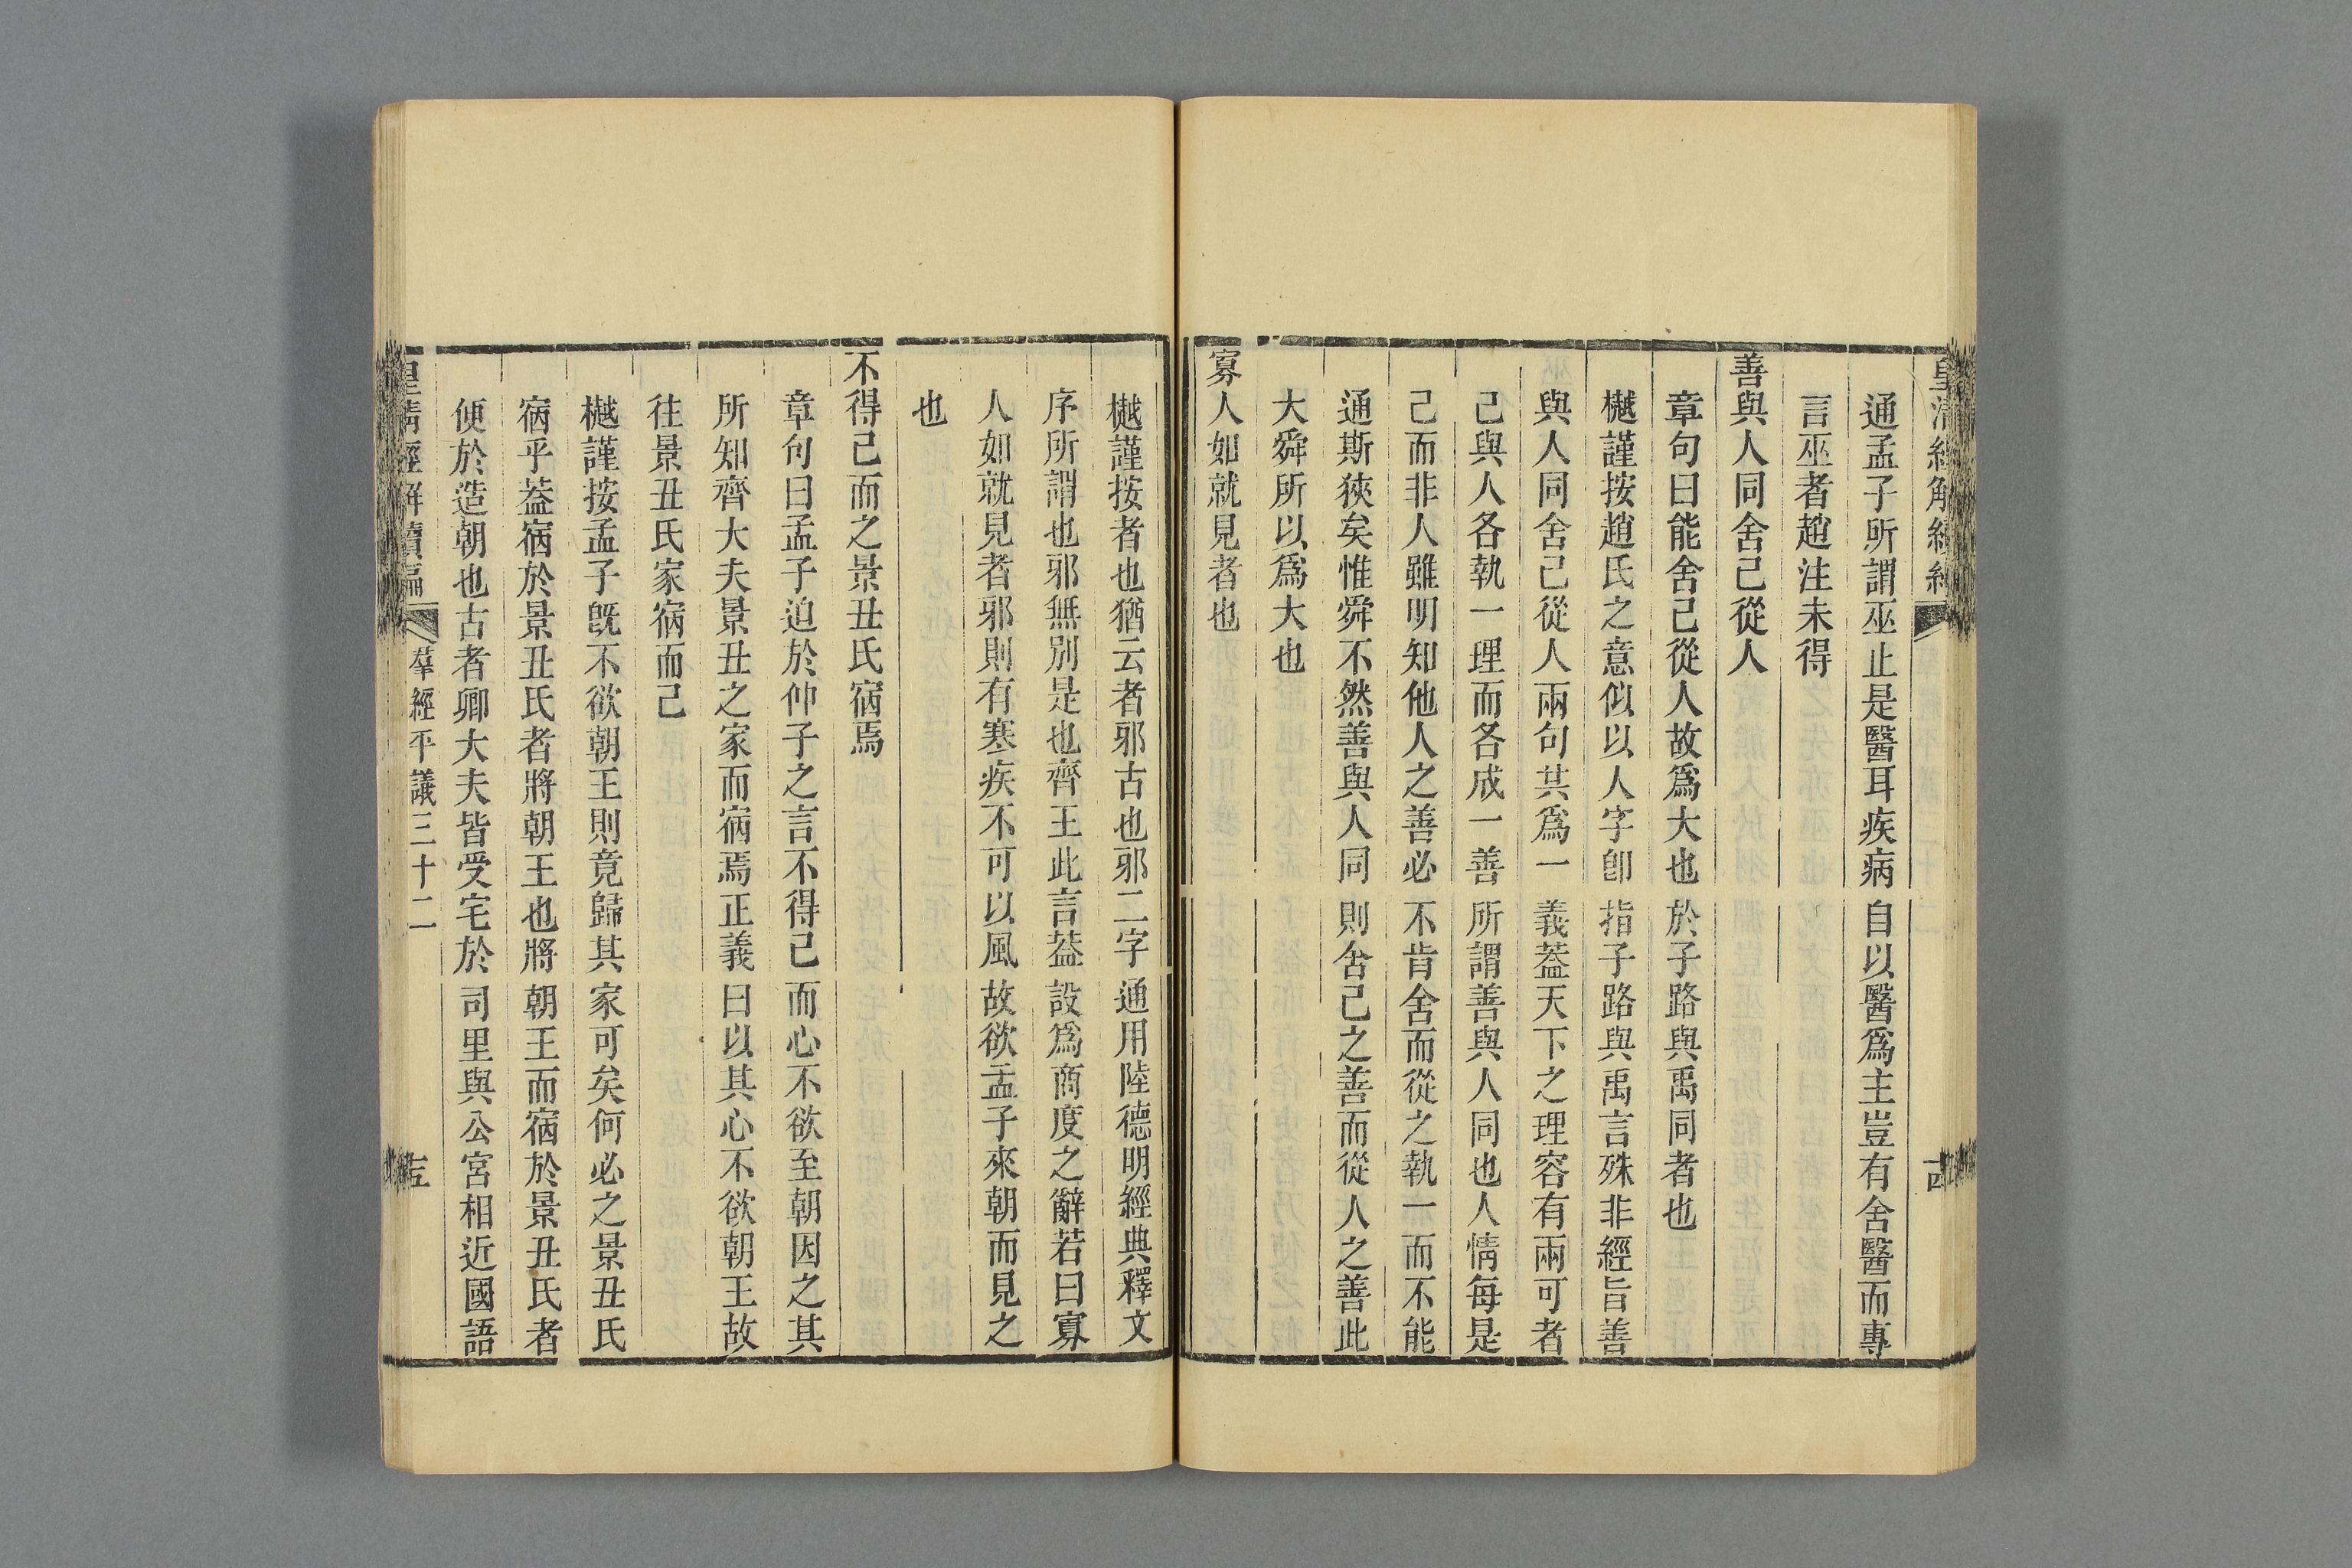 皇清經解續編
通孟子所謂巫止是醫耳疾病自以醫爲主豈有舍醫而專
言巫者趙注未得
善與人同舍己從人
章句曰能舍己從人故爲大也於子路與禹同者也
樾謹按趙氏之意似以人字卽指子路與禹言殊非經旨善
與人同舍己從人兩句共爲一義葢天下之理容有兩可者
己與人各執一理而各成一善所謂善與人同也人情每是
己而非人雖明知他人之善必不肯舍而從之執一而不能
通斯狹矣惟舜不然善與人同則舍己之善而從人之善此
大舜所以爲大也
寡人如就見者也
樾謹按者也猶云者邪古也邪二字通用陸德明經典釋文
序所謂也邪無別是也齊王此言葢設爲商度之辭若曰寡
人如就見者邪則有寒疾不可以風故欲孟子來朝而見之
也
不得已而之景丑氏宿焉
章句曰孟子迫於仲子之言不得已而心不欲至朝因之其
所知齊大夫景丑之家而宿焉正義曰以其心不欲朝王故
往景丑氏家宿而已
樾謹按孟子旣不欲朝王則竟歸其家可矣何必之景丑氏
宿乎葢宿於景丑氏者將朝王也將朝王而宿於景丑氏者
便於造朝也古者卿大夫皆受宅於司里與公宮相近國語
皇清經解續編 羣經平議三十二